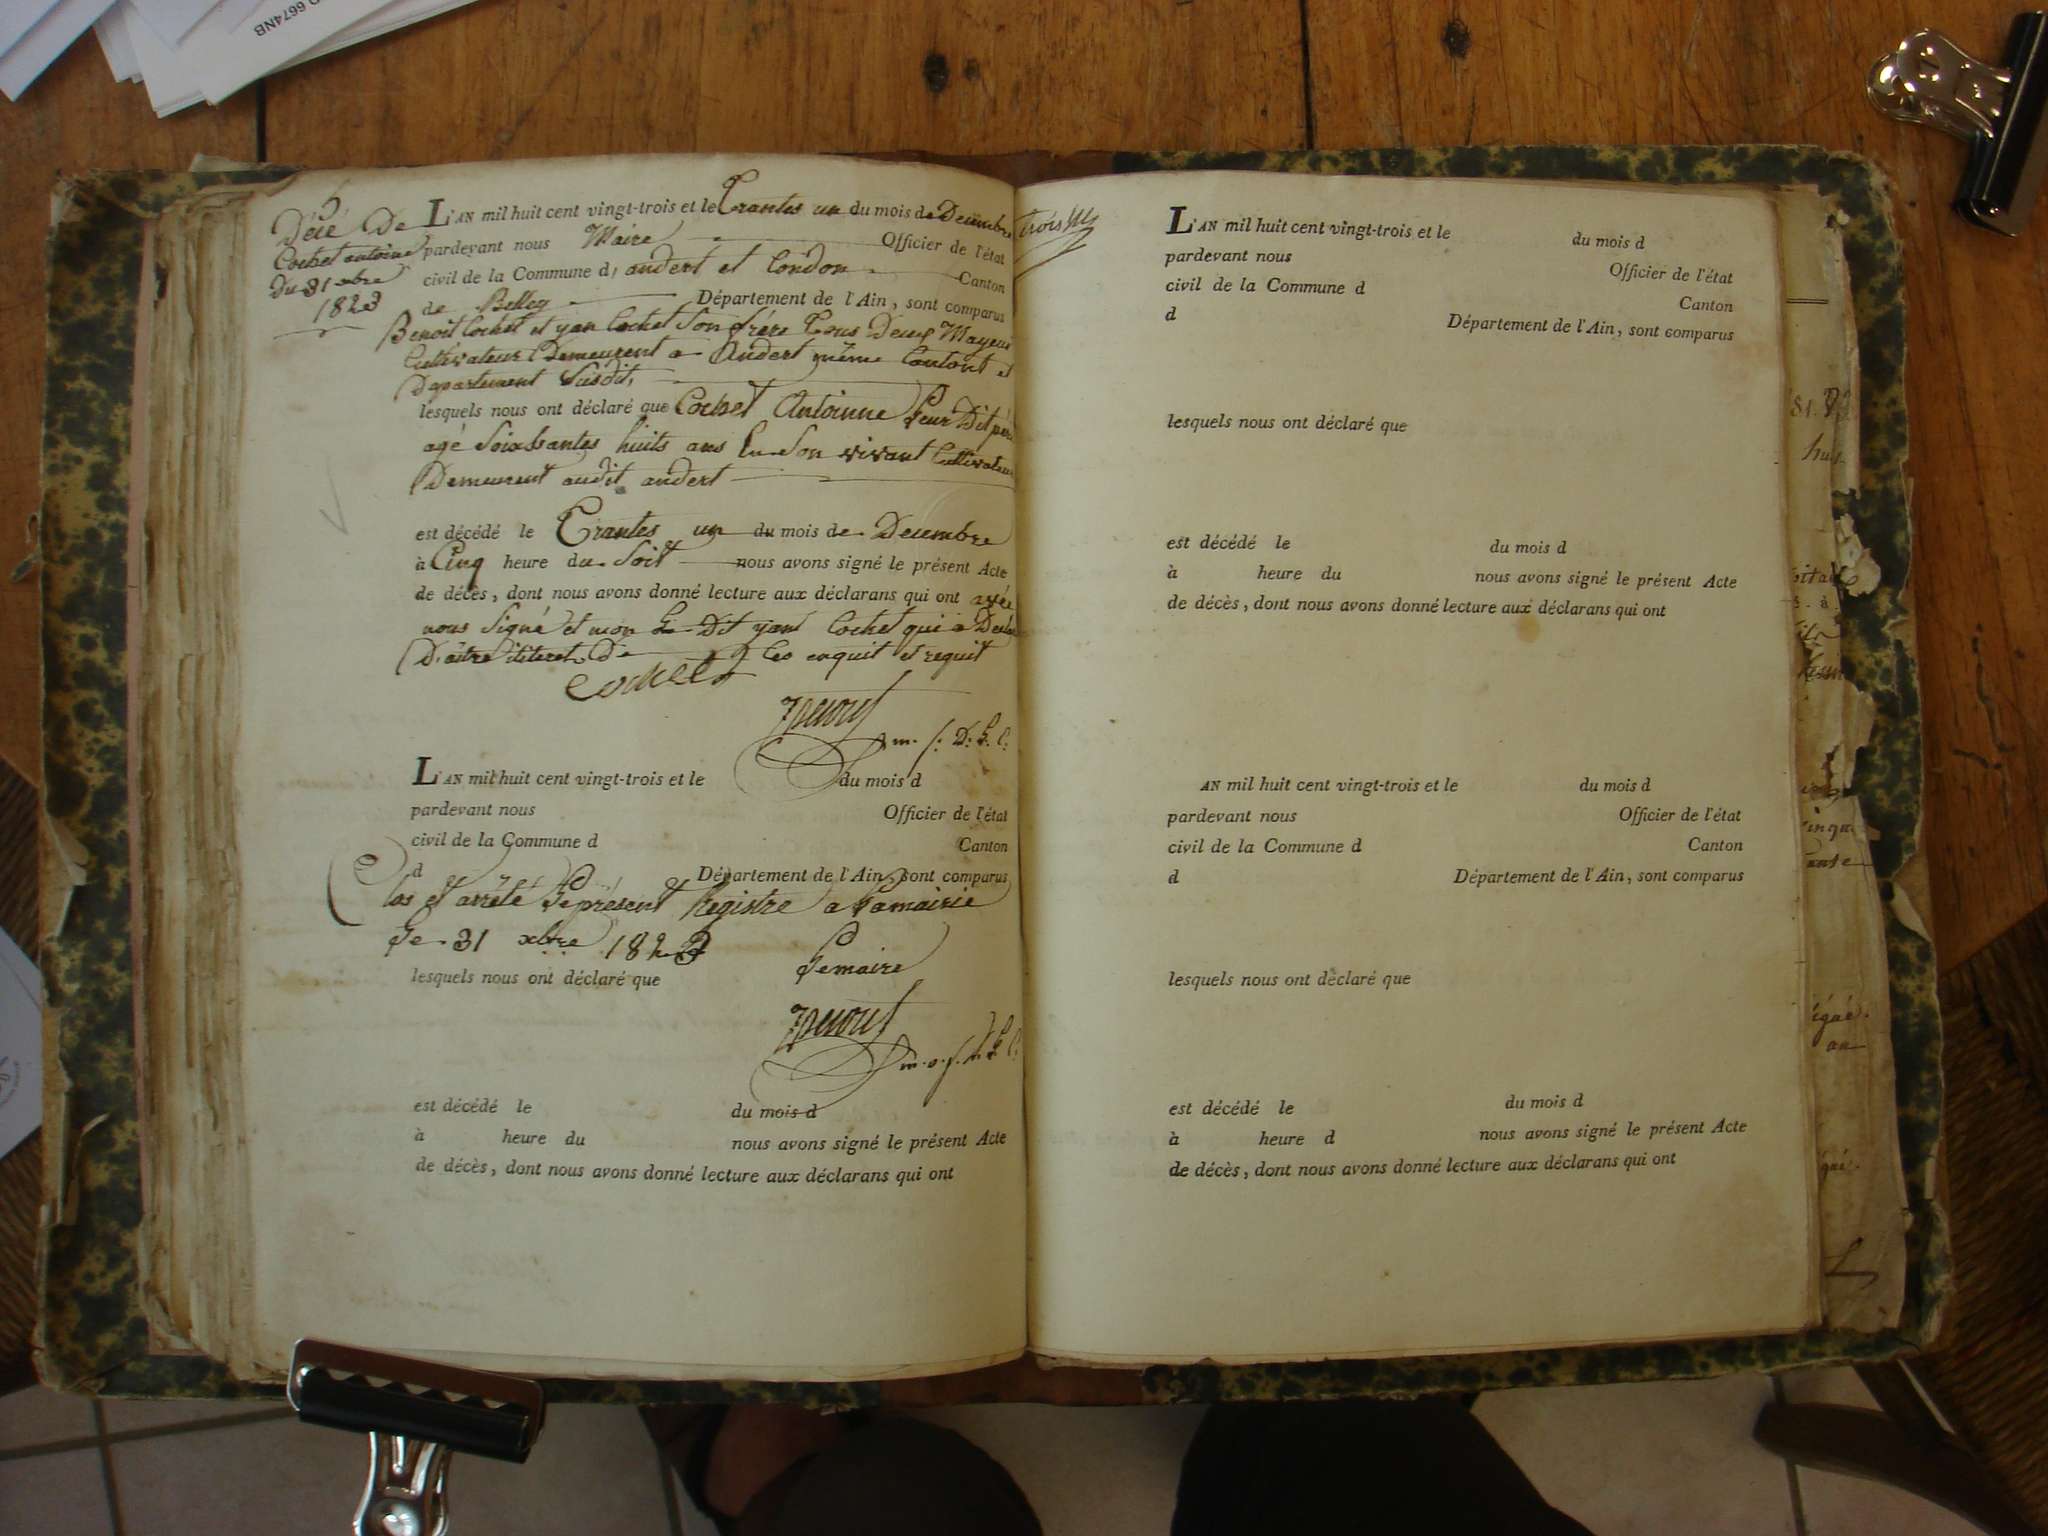 6674NB
5
Décé De
Cochet antoine
Du 31 xbre
1823
L'AN mil huit cent vingt-trois et le Trantes un du mois de Decembre
pardevant nous Maire Officier de l'état
civil de la Commune d, andert et Condon Canton
de Belley Département de l'Ain, sont comparus
Benoit Cochet et yan Cochet Son frére Tous Deux Mayeur
Cultivateur Demeurent a Andert même Contont et
Départtement Susdit,
lesquels nous ont déclaré que Cochet Antoinne Leur Dit pere
agé Soixssantes huits ans En Son vivant Cultivateur
Demeurent audit andert
est décédé le Trantes un du mois de Decembre
à Cinq heure du Soit nous avons signé le présent Acte
de décès, dont nous avons donné lecture aux déclarans qui ont avée
nous Signé et mon Le Dit yant Cochet qui a
D'aitre De Ces enquit et requit
cochet
m. f. D. L. C.
L'AN mil huit cent vingt-trois et le du mois d
pardevant nous Officier de l'état
civil de la Commune d Canton
d Département de l'Ain, sont comparus
Clos et arrété Le présent Registre a Lamairie
Le 31 xbre 1823
lesquels nous ont déclaré que Lemaire
est décédé le du mois d
à heure du nous avons signé le présent Acte
de décès, dont nous avons donné lecture aux déclarans qui ont
trois
L'AN mil huit cent vingt-trois et le du mois d
pardevant nous Officier de l'état
civil de la Commune d Canton
d Département de l'Ain, sont comparus
lesquels nous ont déclaré que
est décédé le du mois d
à heure du nous avons signé le présent Acte
de décès, dont nous avons donné lecture aux déclarans qui ont
AN mil huit cent vingt-trois et le du mois d
pardevant nous Officier de l'état
civil de la Commune d Canton
d Département de l'Ain, sont comparus
lesquels nous ont déclaré que
est décédé le du mois d
à heure d nous avons signé le présent Acte
de décès, dont nous avons donné lecture aux déclarans qui ont